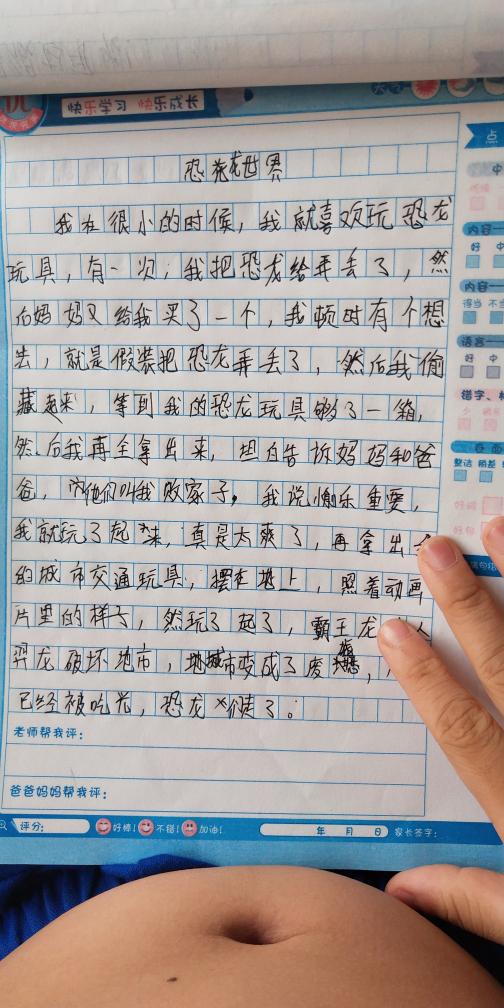 快乐学习 快乐成长
恐龙世界
我在很小的时候，我就喜欢玩恐龙
玩具，有一次，我把恐龙给弄丢了，然
后妈妈又给我买了一个，我顿时有个想
法，就是假装把恐龙弄丢了，然后我偷
藏起来，等到我的恐龙玩具够了一箱，
然后我再全拿出来，坦白告诉妈妈和爸
爸，他们叫我败家子。我说快乐重要，
我就玩了起来，真是太爽了，再拿出
的城市交通玩具，摆在地上，照着动画
片里的样子，然玩了起了，霸王龙 人
羿龙破坏地市，城市变成了废墟，
已经被吃光，恐龙走了。
老师帮我评：
爸爸妈妈帮我评：
评分： 好棒！ 不错！ 加油！ 年 月 日 家长签字：
点
中
内容一
好 中
内容一
得当 不当
语言一
好 中
错字、
整洁 稍差
好词
好句